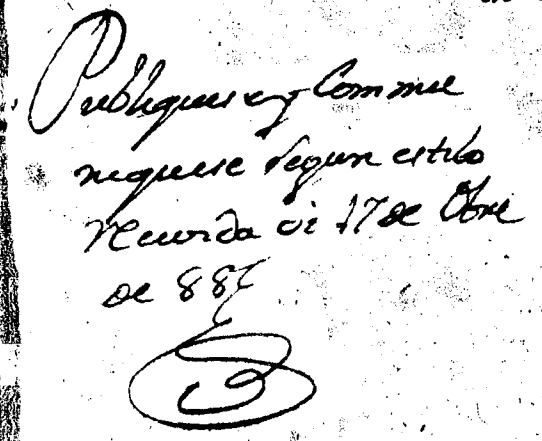 Publiquese y Commu
niquese segun estilo
Recivida oi 17 de Obre
de 88